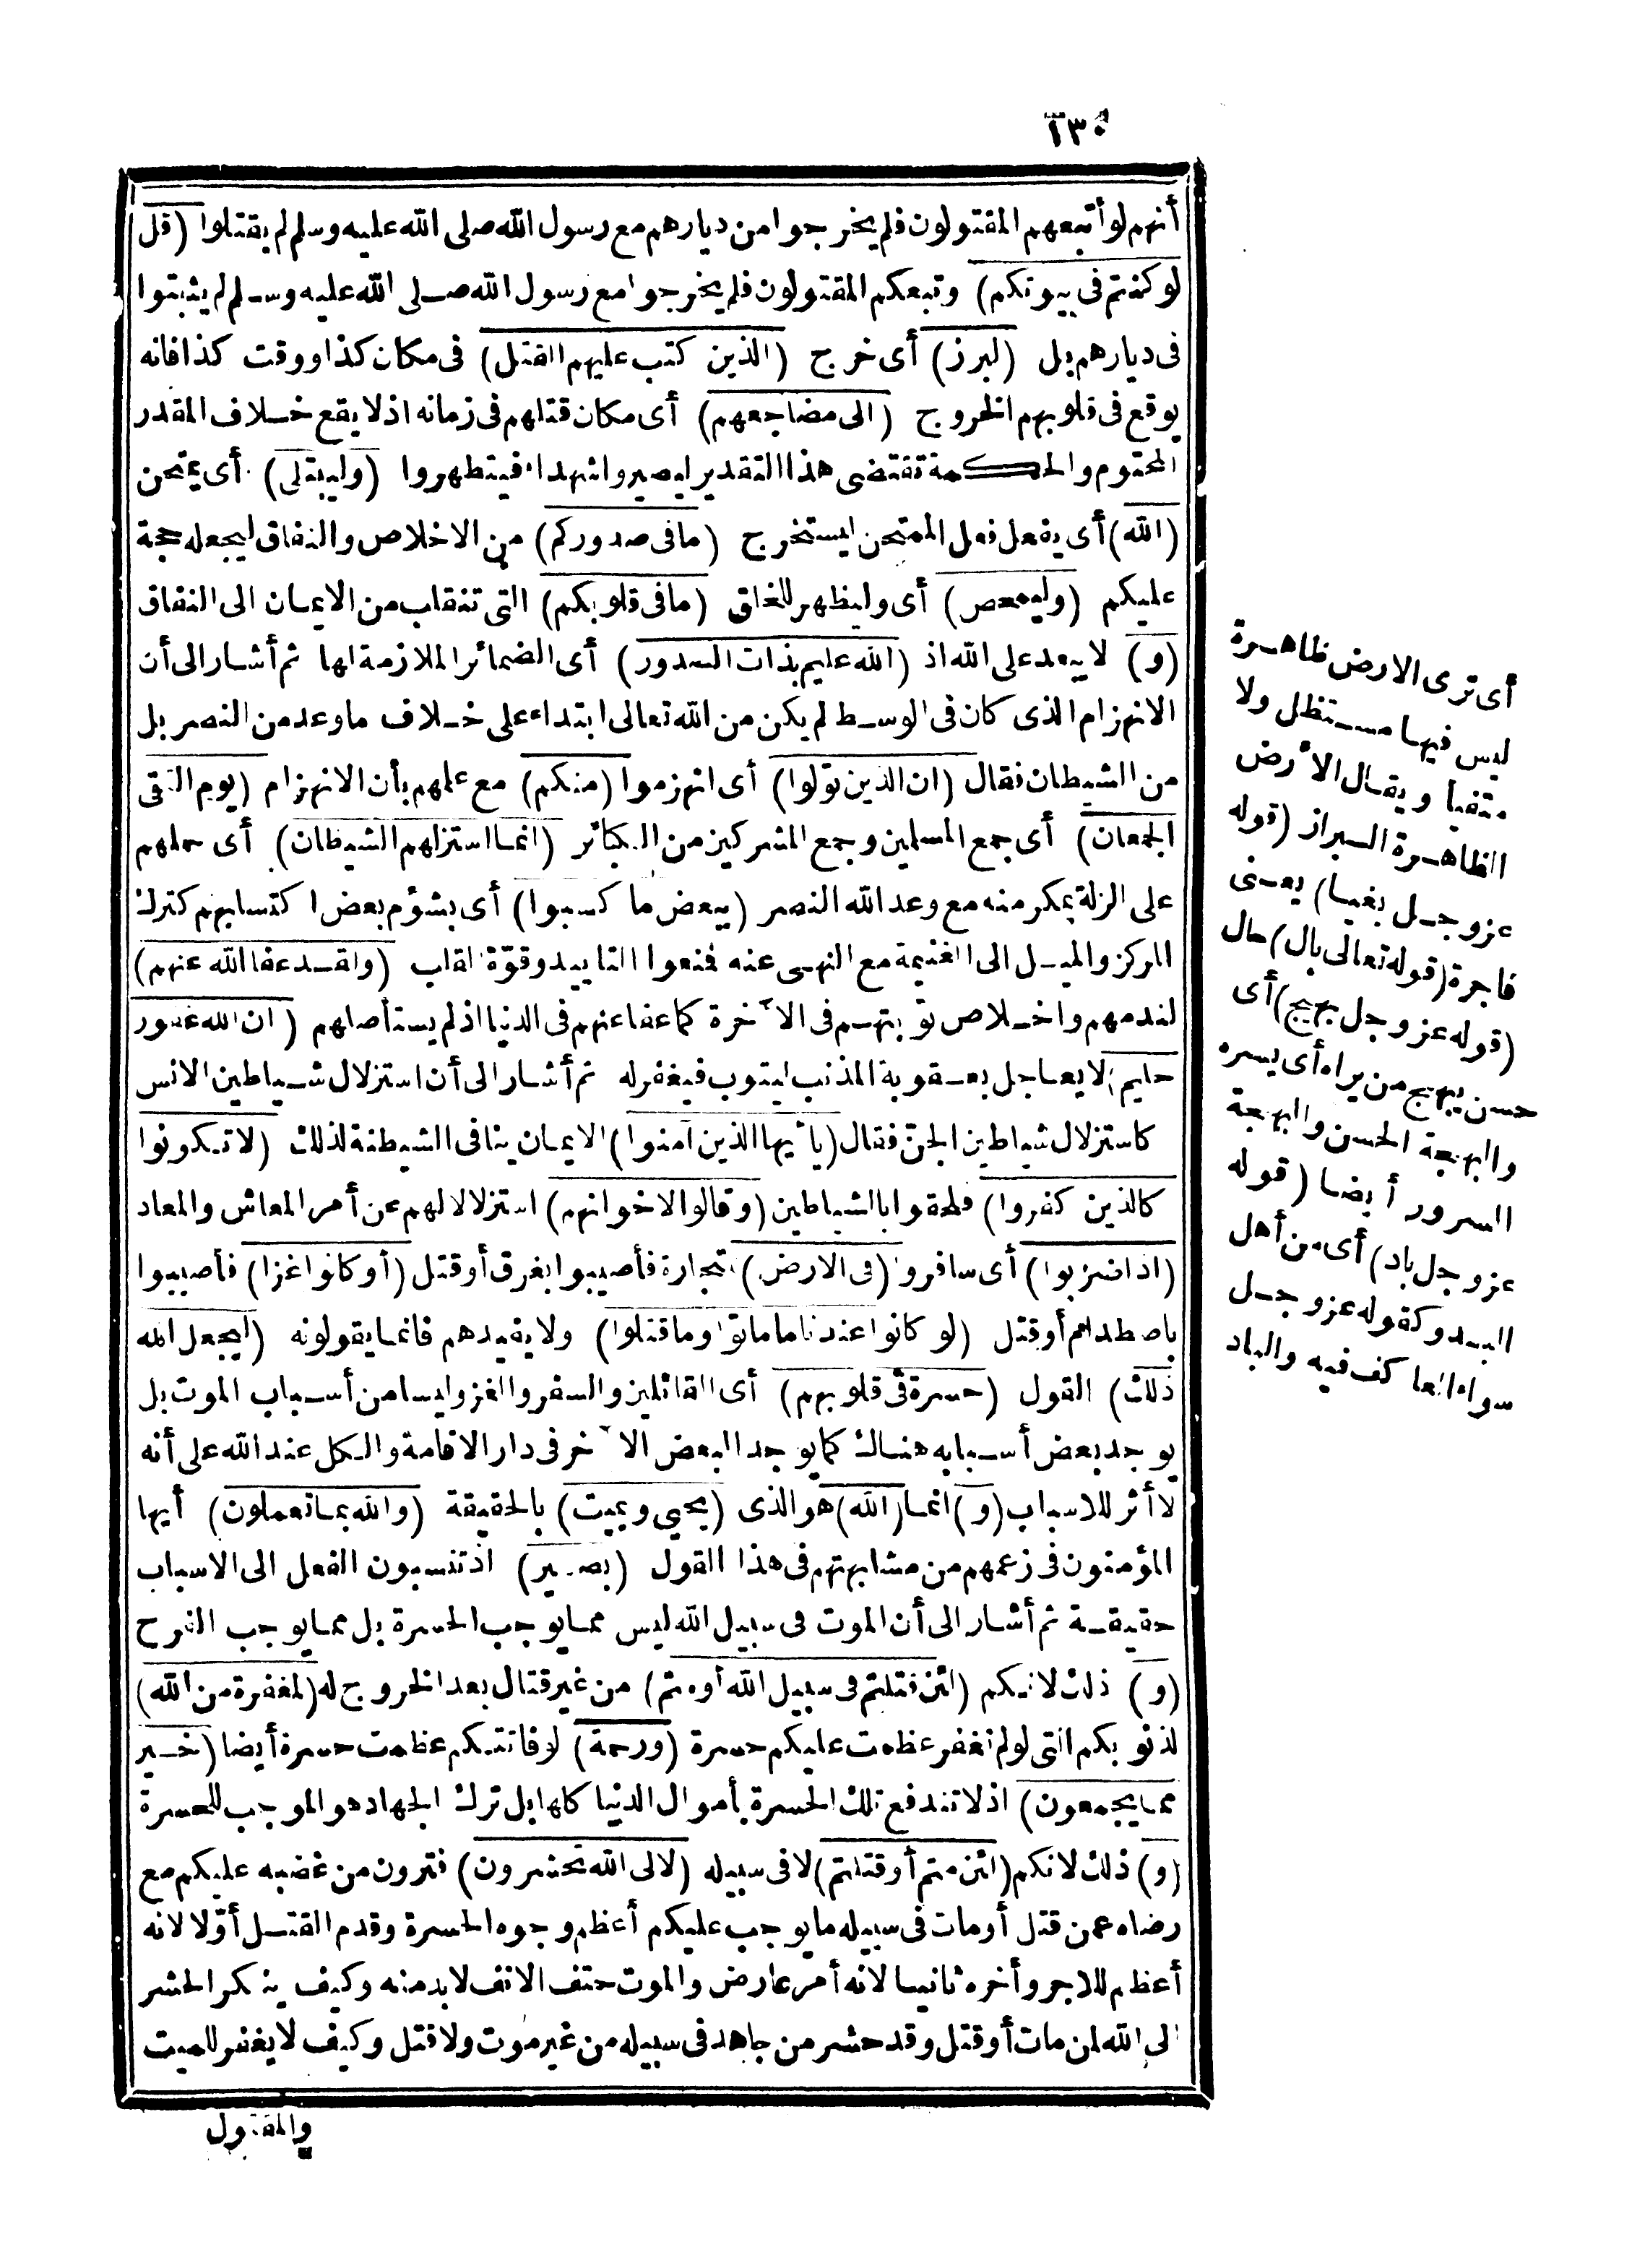 ١٣٠
أنهم لو أتبعهم المقتولون فلم يخرجوا من ديارهم مع رسول الله صلى الله عليه وسلم لم يقتلوا (قل
لوكنتم فى بيوتكم) وتبعكم المقتولون فلم يخرجوا مع رسول الله صلى الله عليه وسلم لم يثبتوا
فى ديارهم بل (لبرز) أى خرج (الذين كتب عليهم القتل) فى مكان كذا ووقت كذا فانه
يوقع فى قلوبهم الخروج (الى مضاجعهم) أى مكان قتلهم فى زمانه اذ لا يقع خلاف المقدر
المحتوم والحكمة تقتضى هذا التقدير ليصيروا شهداء فيتطهروا (وليبتلى) أى يمتحن
(الله) أى يفعل فعل الممتحن ليستخرج (ما فى صدوركم) من الاخلاص والنفاق ليجعله حجة
عليكم (وليمحص) أى وليظهر للخلق (ما فى قلوبكم) التى تنقلب من الايمان الى النفاق
(و) لا يبعد على الله اذ (الله عليم بذات الصدور) أى الضمائر الملازمة لها ثم أشار الى أن
الانهزام الذى كان فى الوسط لم يكن من الله تعالى ابتداء على خلاف ما وعد من النصر بل
من الشيطان فقال (ان الذين تولوا) أى انهزموا (منكم) مع علمهم بأن الانهزام (يوم التقى
الجمعان) أى جمع المسلمين وجمع المشركين من الكبائر (انما استزلهم الشيطان) أى حملهم
على الزلة بمكر منه مع وعد الله النصر (ببعض ما كسبوا) أى بشؤم بعض اكتسابهم كترك
المركز والميل الى الغنيمة مع النهى عنه فمنعوا التأييد وقوّة القلب (ولقد عفا الله عنهم)
لندمهم واخلاص توبتهم فى الآخرة كما عفا عنهم فى الدنيا اذ لم يستأصلهم (ان الله غفور
حليم) لا يعاجل بعقوبة المذنب ليتوب فيغفر له ثم أشار الى أن استزلال شياطين الانس
كاستزلال شياطين الجنّ فقال (يا أيها الذين آمنوا) الايمان ينافى الشيطنة لذلك (لا تكونوا
كالذين كفروا) فلحقوا بالشياطين (وقالوا لاخوانهم) استزلالا لهم عن أمر المعاش والمعاد
(اذا ضربوا) أى سافروا (فى الارض) تجارة فأصيبوا بغرق أو قتل (أو كانوا غزا) فأصيبوا
باصطدام أو قتل (لو كانوا عندنا ما ماتوا وما قتلوا) ولا يفيدهم فانما يقولونه (ليجعل الله
ذلك) القول (حسرة فى قلوبهم) أى القائلين والسفر والغزو ليسا من أسباب الموت بل
يوجد بعض أسبابه هناك كما يوجد البعض الآخر فى دار الاقامة والكل عند الله على أنه
لا أثر للاسباب (و) انما (الله) هو الذى (يحيى ويميت) بالحقيقة (والله بما تعملون) أيها
المؤمنون فى زعمهم من مشابهتهم فى هذا القول (بصير) اذ تنسبون الفعل الى الاسباب
حقيقة ثم أشار الى أن الموت فى سبيل الله ليس مما يوجب الحسرة بل مما يوجب الفرح
(و) ذلك لانكم (لئن قتلتم فى سبيل الله أو متم) من غير قتال بعد الخروج له (لمغفرة من الله)
لذنوبكم التى لو لم تغفر عظمت عليكم حسرة (ورحمة) لو فاتتكم عظمت حسرة أيضا (خير
مما يجمعون) اذ لا تندفع تلك الحسرة بأموال الدنيا كلها بل ترك الجهاد هو الموجب للحسرة
(و) ذلك لانكم (لئن متم أو قتلتم) لا فى سبيله (لالى الله تحشرون) فترون من غضبه عليكم مع
رضاه عمن قتل أو مات فى سبيله ما يوجب عليكم أعظم وجوه الحسرة وقدم القتل أوّلا لانه
أعظم للاجر وأخره ثانيا لانه أمر عارض والموت حتف الانف لابد منه وكيف ينكر الحشر
الى الله لمن مات أو قتل وقد حشر من جاهد فى سبيله من غير موت ولا قتل وكيف لا يغفر للميت
والمقتول
أى ترى الارض ظاهرة
ليس فيها مستظل ولا
متفيأ ويقال الأرض
الظاهرة البراز (قوله
عز وجل بغيا) يعنى
فاجرة (قوله تعالى بال) حال
(قوله عز وجل بهيج) أى
حسن يبهج من يراه أى يسره
والبهجة الحسن والبهجة
السرور أيضا (قوله
عز وجل باد) أى من أهل
البدو كقوله عز وجل
سواء العاكف فيه والباد